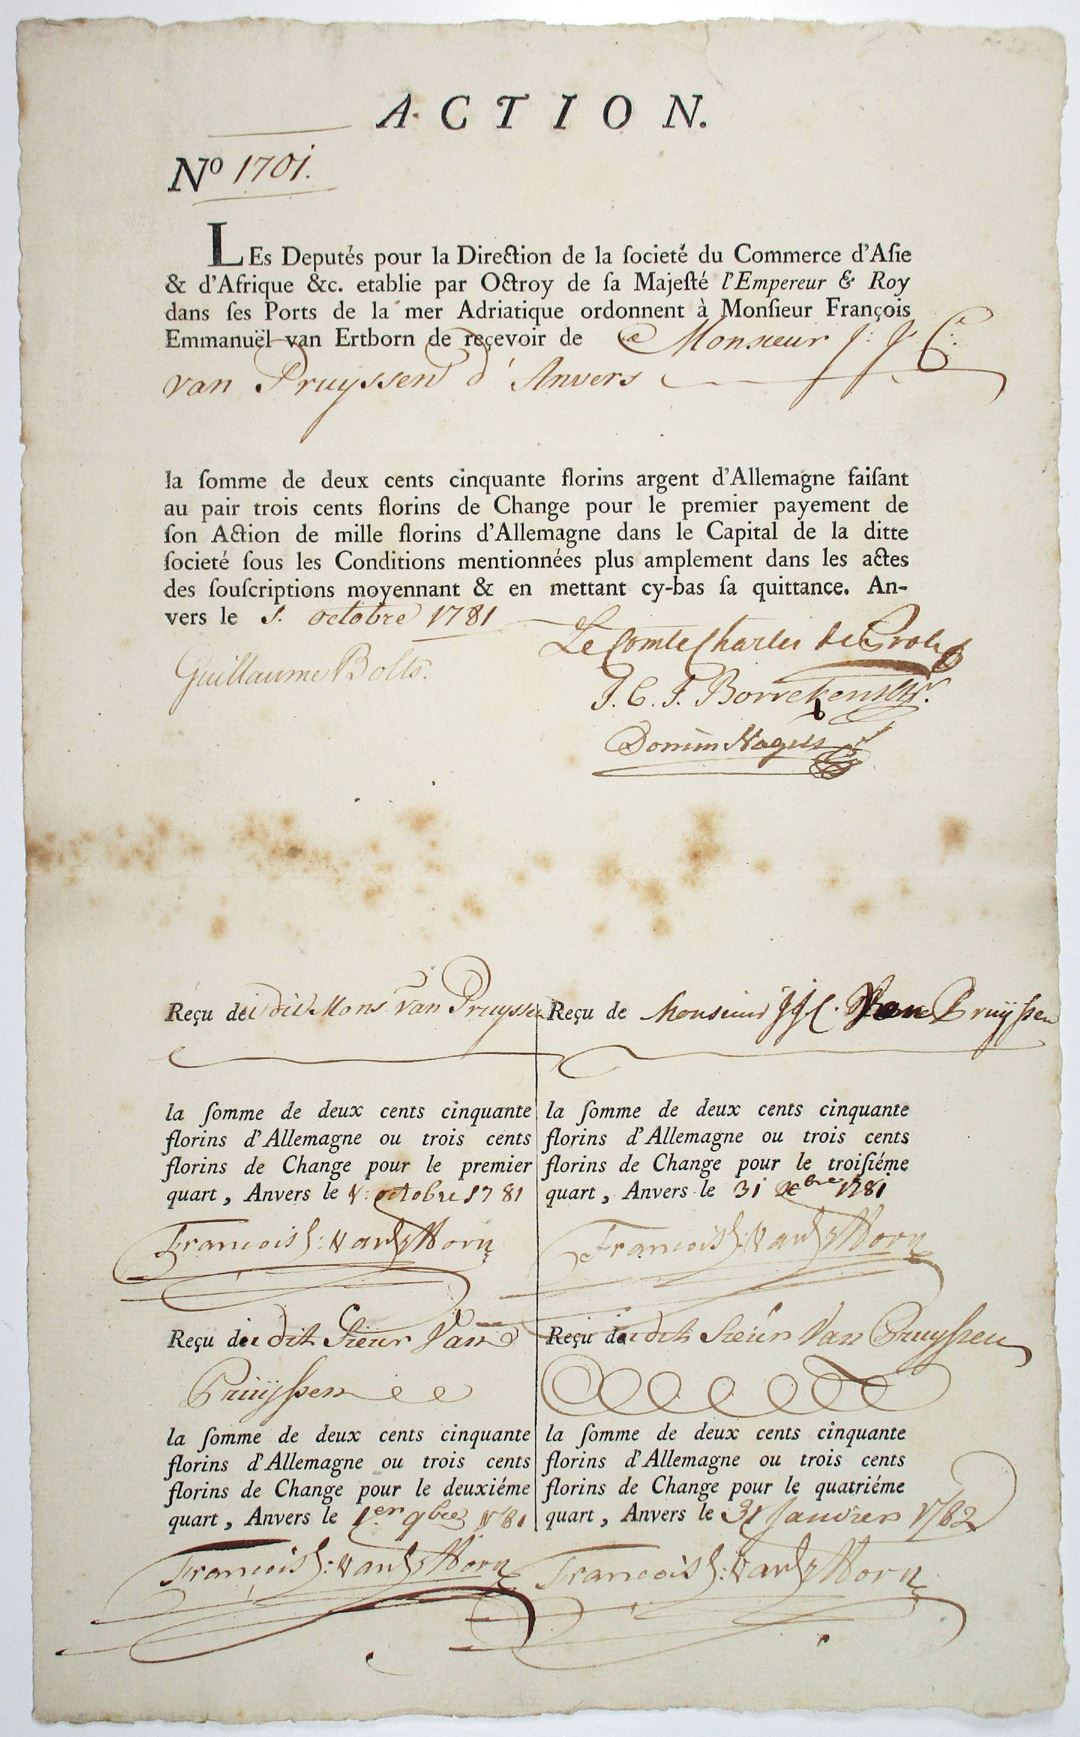 ACTION.
Nº 1701.
LEs Deputés pour la Direction de la ſocieté du Commerce d'Aſie
& d'Afrique &c. etablie par Octroy de ſa Majeſté l'Empereur & Roy
dans ſes Ports de la mer Adriatique ordonnent à Monſieur François
Emmanuël van Ertborn de reçevoir de Monsieur J: J: C:
van Pruyssen d'Anvers
la ſomme de deux cents cinquante florins argent d'Allemagne faiſant
au pair trois cents florins de Change pour le premier payement de
ſon Action de mille florins d'Allemagne dans le Capital de la ditte
ſocieté ſous les Conditions mentionnées plus amplement dans les actes
des ſouſcriptions moyennant & en mettant cy-bas ſa quittance. An-
vers le octobre 1781
Le Comte Charles de Proli
Guillaume Bolts.
J. C. J. Borrekens
Reçu de dit Mons van Pruyssen
la ſomme de deux cents cinquante
florins d'Allemagne ou trois cents
florins de Change pour le premier
quart, Anvers le octobre 1781
François E: van Ertborn
Reçu de dit Sieur Van
Pruyſsen
la ſomme de deux cents cinquante
florins d'Allemagne ou trois cents
florins de Change pour le deuxiéme
quart, Anvers le 1er 9bre 1781
François E: van Ertborn
Reçu de Monsieur JJC. Van Pruyſsen
la ſomme de deux cents cinquante
florins d'Allemagne ou trois cents
florins de Change pour le troiſiéme
quart, Anvers le 31 Xbre 1781
François E: van Ertborn
Reçu de dit Sieur Van Pruyſsen
la ſomme de deux cents cinquante
florins d'Allemagne ou trois cents
florins de Change pour le quatriéme
quart, Anvers le 31 Janvier 1782
François E: van Ertborn